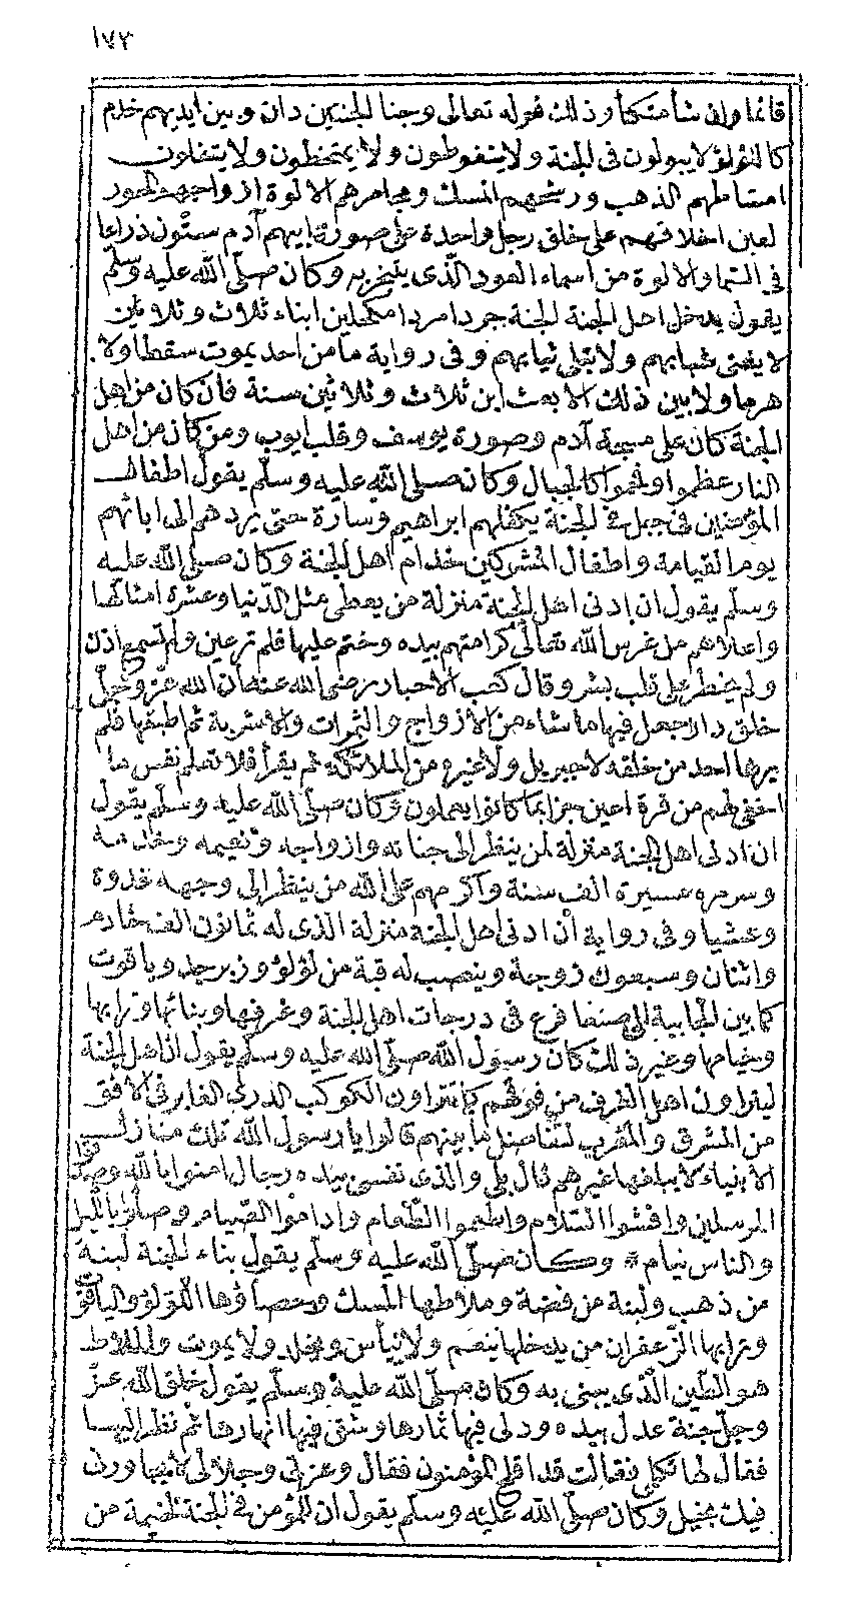 ١٧٣
قائما وان شأ متكأ وذلك قوله تعالى وجنا الجنتين دان وبين ايديهم خدم
كاللؤلؤ لا يبولون فى الجنة ولا يتغوطون ولا يمتخطون ولا يتفلون
امشاطهم الذهب ورشحهم المسك ومجامرهم الالوة ازواجهم الحور
لعين اخلاقهم على خلق رجل واحدة على صورة ابيهم آدم ستون ذراعا
في السّما والالوة من اسماء العود الّذى يتبخر به وكان صلّى الله عليه وسلّم
يقول يدخل اهل الجنة الجنة جردا مردا مكحلين ابناء ثلاث وثلاثين
لا يفنى شبابهم ولا تبلى ثيابهم وفى رواية ما من احد يموت سقطا ولا
هرما ولا بين ذلك الا بعث ابن ثلاث وثلاثين سنة فان كان من اهل
الجنة كان على مسحة آدم وصورة يوسف وقلب ايوب ومن كان من اهل
النار عظموا وفخموا كالجبال وكان صلى الله عليه وسلّم يقول اطفال
المؤمنين فى جبل فى الجنة يكفلهم ابراهيم وسارة حتى يردهم الى ابائهم
يوم القيامة واطفال المشركين خدام اهل الجنة وكان صلّى الله عليه
وسلّم يقول ان ادنى اهل الجنة منزلة من يعطى مثل الدّنيا وعشرة امثالها
واعلاهم من غرس الله تعالى كرامتهم بيده وختم عليها فلم تر عين ولم تسمع اذن
ولم يخطر على قلب بشر وقال كعب الاحبار رضى الله عنه ان الله عزّ وجلّ
خلق دارا جعل فيها ما شاء من الازواج والثمرات والاشربة ثم اطبقها فلم
يرها احد من خلقه لا جبريل ولا غيره من الملائكة ثم يقرأ فلا تعلم نفس ما
اخفى لهم من قرة اعين جزاء بما كانوا يعملون وكان صلّى الله عليه وسلّم يقول
ان ادنى اهل الجنة منزلة لمن ينظر الى جنانه وازواجه ونعيمه وخدمه
وسرره مسيرة الف سنة واكرمهم على الله من ينظر الى وجهه غدوة
وعشيا وفى رواية أن ادنى اهل الجنة منزلة الذى له ثمانون الف خادم
واثنان وسبعون زوجة وينصب له قبة من لؤلؤ وزبرجد وياقوت
كما بين الجابية الى صنعا فرع فى درجات اهل الجنة وغرفها وبنائها وترابها
وخيامها وغير ذلك كان رسول الله صلّى الله عليه وسلّم يقول ان اهل الجنة
ليتراون اهل الغرف من فوقهم كما تتراون الكوكب الدرى الغابر فى الافق
من المشرق والمغرب لتفاضل ما بينهم قالوا يا رسول الله تلك منازل
الانبياء لا يبلغها غيرهم قال بلى والذى نفسى بيده رجال امنوا بالله وصدقوا
المرسلين وافشوا السّلام واطعموا الطّعام واداموا الصّيام وصلّوا بالليل
والناس نيام * وكان صلّى الله عليه وسلّم يقول بناء الجنة لبنة
من ذهب ولبنة من فضة وملاطها المسك وحصباؤها اللؤلؤ والياقوت
وترابها الزّعفران من يدخلها ينعم ولا ييأس ويخلد ولا يموت والملاط
هو الطّين الّذى يبنى به وكان صلّى الله عليه وسلّم يقول خلق الله عزّ
وجلّ جنة عدل بيده ودلى فيها ثمارها وشق فيها انهارها ثم نظر اليها
فقال لها تكلمى فقالت قد افلح المؤمنون فقال وعزتى وجلالى لا يجاورنى
فيك بخيل وكان صلّى الله عليه وسلّم يقول ان للمؤمن فى الجنة لخيمة من